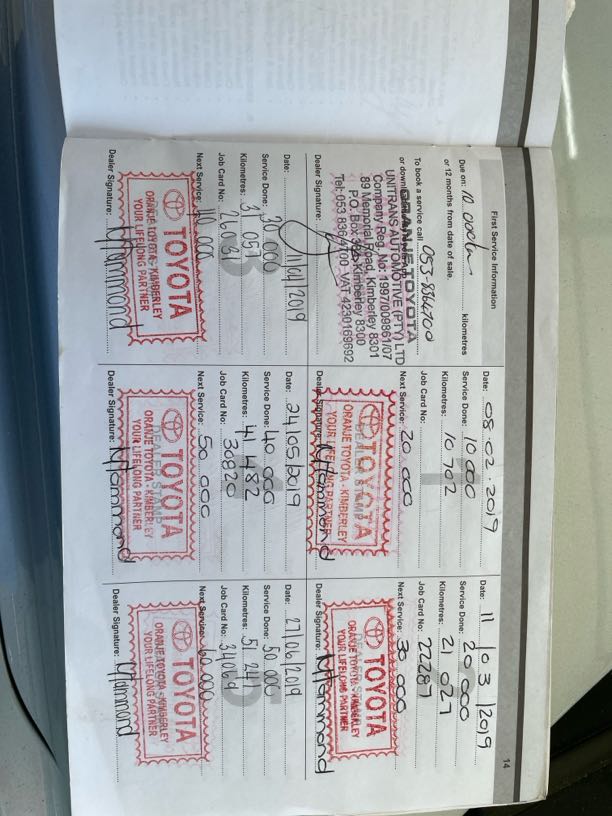 14
First Service Information
Due on: 10 000km kilometres
or 12 months from date of sale.
To book a service call 053-8364700
or
ORANJE TOYOTA
UNITRANS AUTOMOTIVE (PTY) LTD
Company Reg. No: 1997/009361/07
89 Memorial Road, Kimberley 8301
P.O. Box Kimberley 8300
Tel: 053 8364700 VAT 4230169692
Dealer Signature:
1
Date: 08.02.2019
Service Done: 10 000
Kilometres: 10 702
Job Card No:
Next Service: 20 000
DEALER STAMP
TOYOTA
ORANJE TOYOTA - KIMBERLEY
YOUR LIFELONG PARTNER
Dealer Signature: N Hammond
Date: 11/03/2019
Service Done: 20 000
Kilometres: 21 027
Job Card No: 22287
Next Service: 30 000
DEALER STAMP
TOYOTA
ORANJE TOYOTA - KIMBERLEY
YOUR LIFELONG PARTNER
Dealer Signature: N Hammond
3
Date: /04/2019
Service Done: 30 000
Kilometres: 31 051
Job Card No: 26031
Next Service: 40 000
TOYOTA
ORANJE TOYOTA - KIMBERLEY
YOUR LIFELONG PARTNER
Dealer Signature: N Hammond
Date: 24/05/2019
Service Done: 40 000
Kilometres: 41 482
Job Card No: 30820
Next Service: 50 000
DEALER STAMP
TOYOTA
ORANJE TOYOTA - KIMBERLEY
YOUR LIFELONG PARTNER
Dealer Signature: N Hammond
5
Date: 27/06/2019
Service Done: 50 000
Kilometres: 51 247
Job Card No: 34069
Next Service: 60 000
TOYOTA
ORANJE TOYOTA - KIMBERLEY
YOUR LIFELONG PARTNER
Dealer Signature: N Hammond